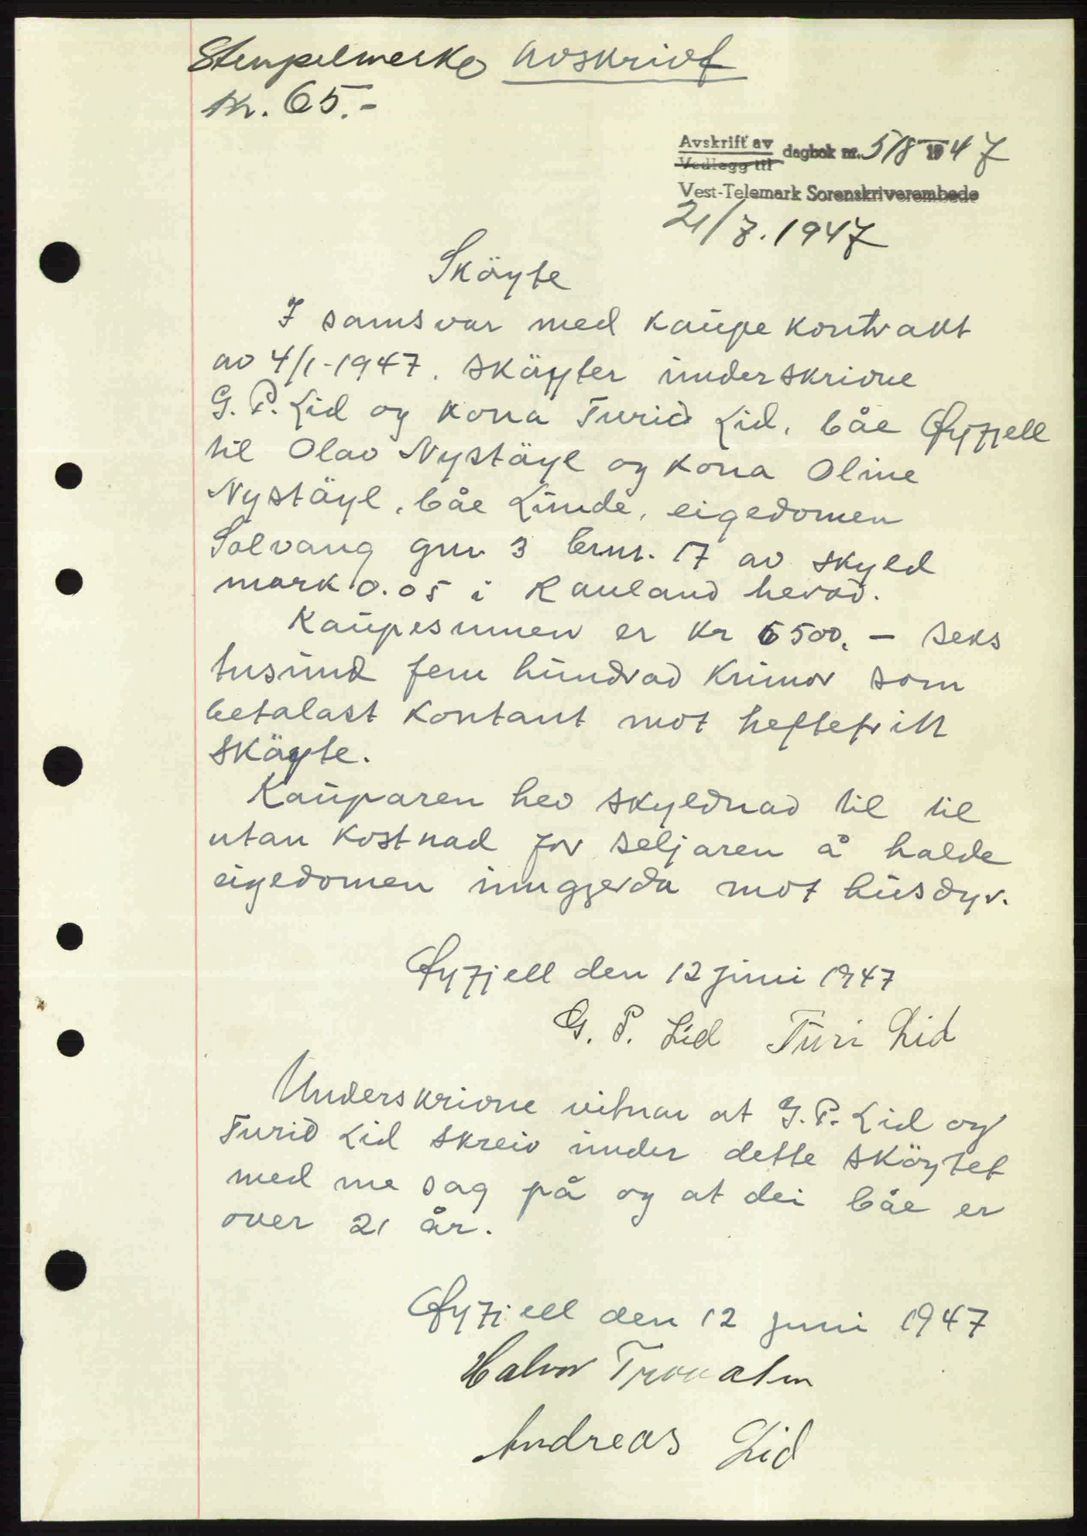 Stempelmerke Avskrivt
Kr. 65.-
Avskrift av
Vedlegg til
dagbok nr. 518 1947
Vest-Telemark Sorenskriverembede
21/7.1947
Sköyte
I samsvar med kaupekontrakt
av 4/1-1947. sköyter underskrivne
G. P. Lid og kona Turid Lid, båe Öyfjell
til Olav Nystäyl og kona Oline
Nystäyl, båe Linde, eigedomen
Solvang gnr 3 brnr. 17 av skyld
mark 0.05 i Rauland herad.
Kaupesumen er kr 6500.- seks
tusund fem hundrad krunor som
betalast kontant mot heftefritt
sköyte.
Kauparen hev skyldnad til til
utan kostnad for seljaren å halde
eigedomen inngjerda mot husdyr.
Öyfjell den 12 juni 1947
G. P. Lid Turi Lid
Underskrivne vitnar at G. P. Lid og
Turid Lid skreiv under dette sköytet
med me såg på og at dei båe er
over 21 år.
Öyfjell den 12 juni 1947
Halvor
Andreas Lid